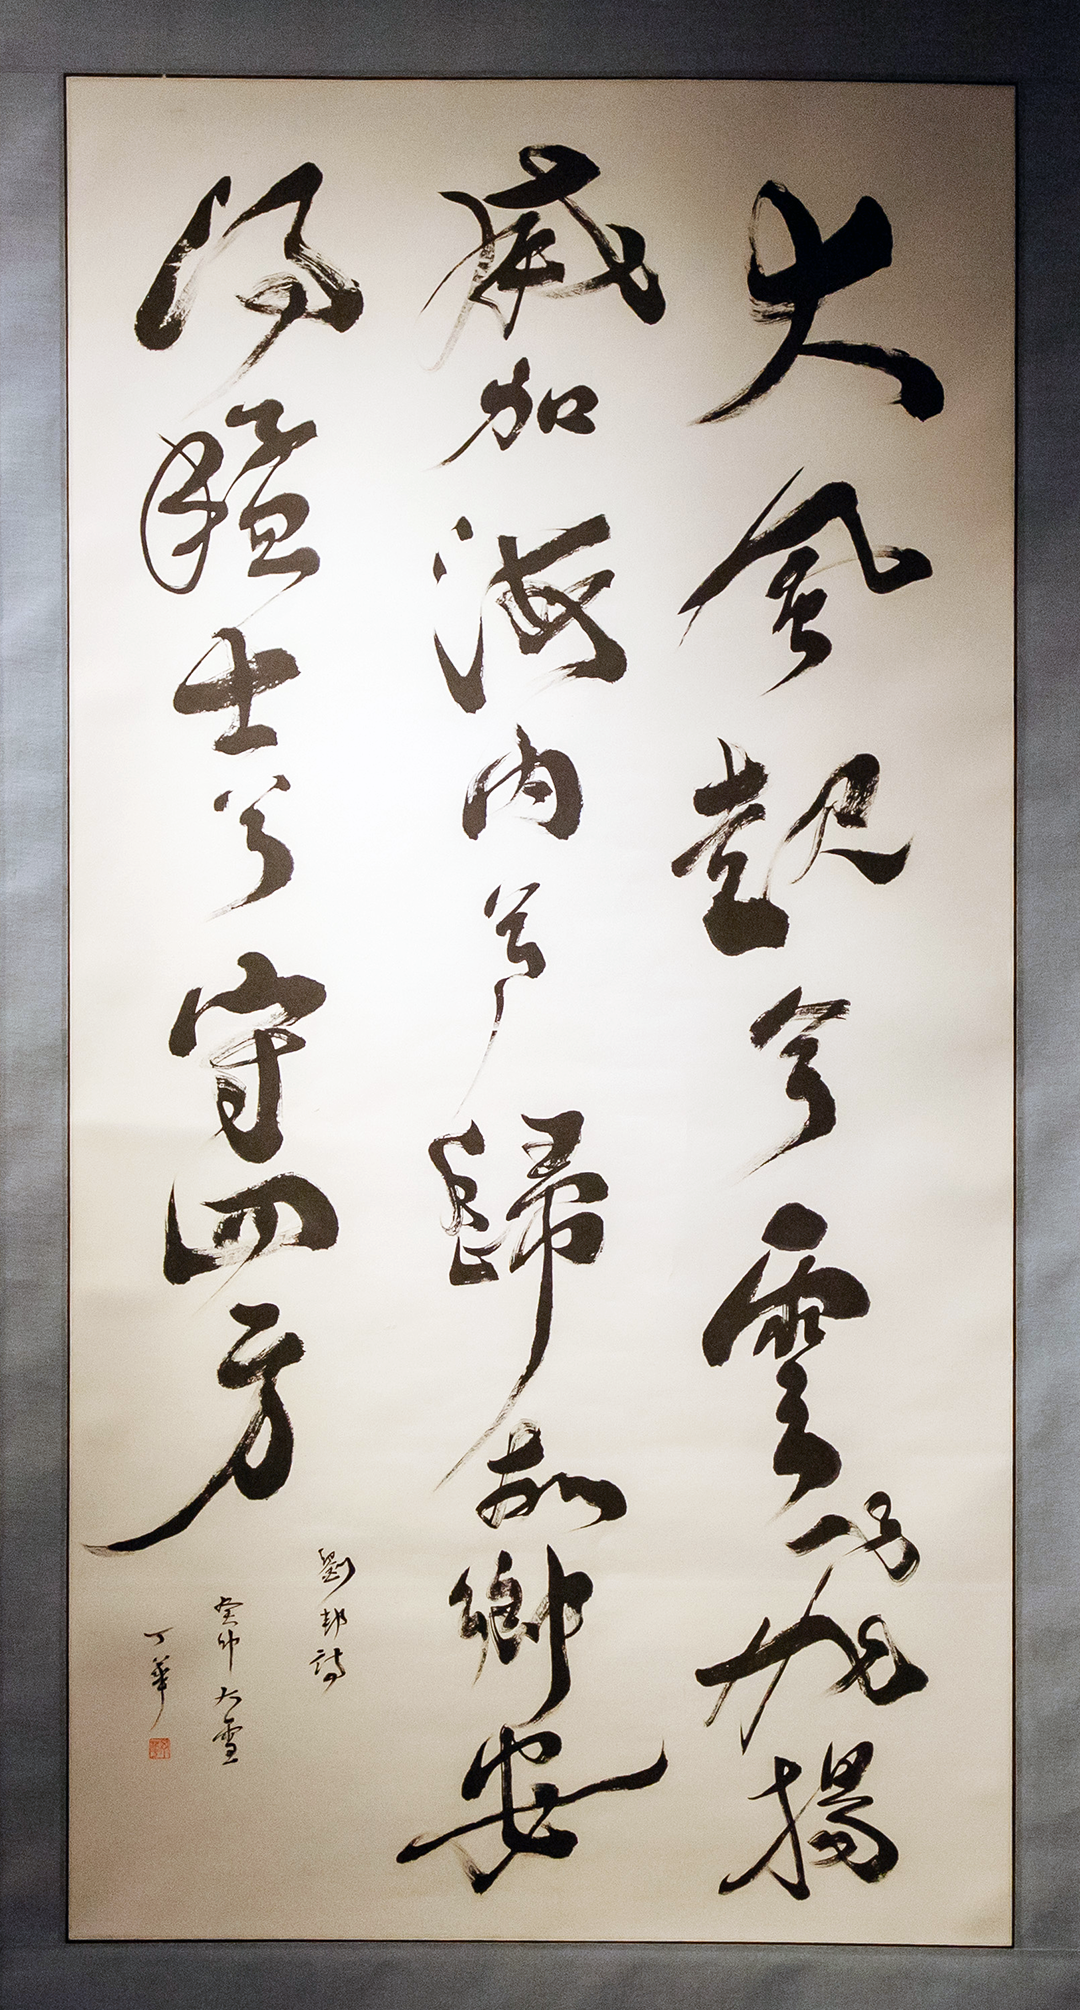 大風起兮雲飛揚
威加海内兮歸故鄉安
得猛士兮守四方
劉邦詩
癸卯大雪
丁華